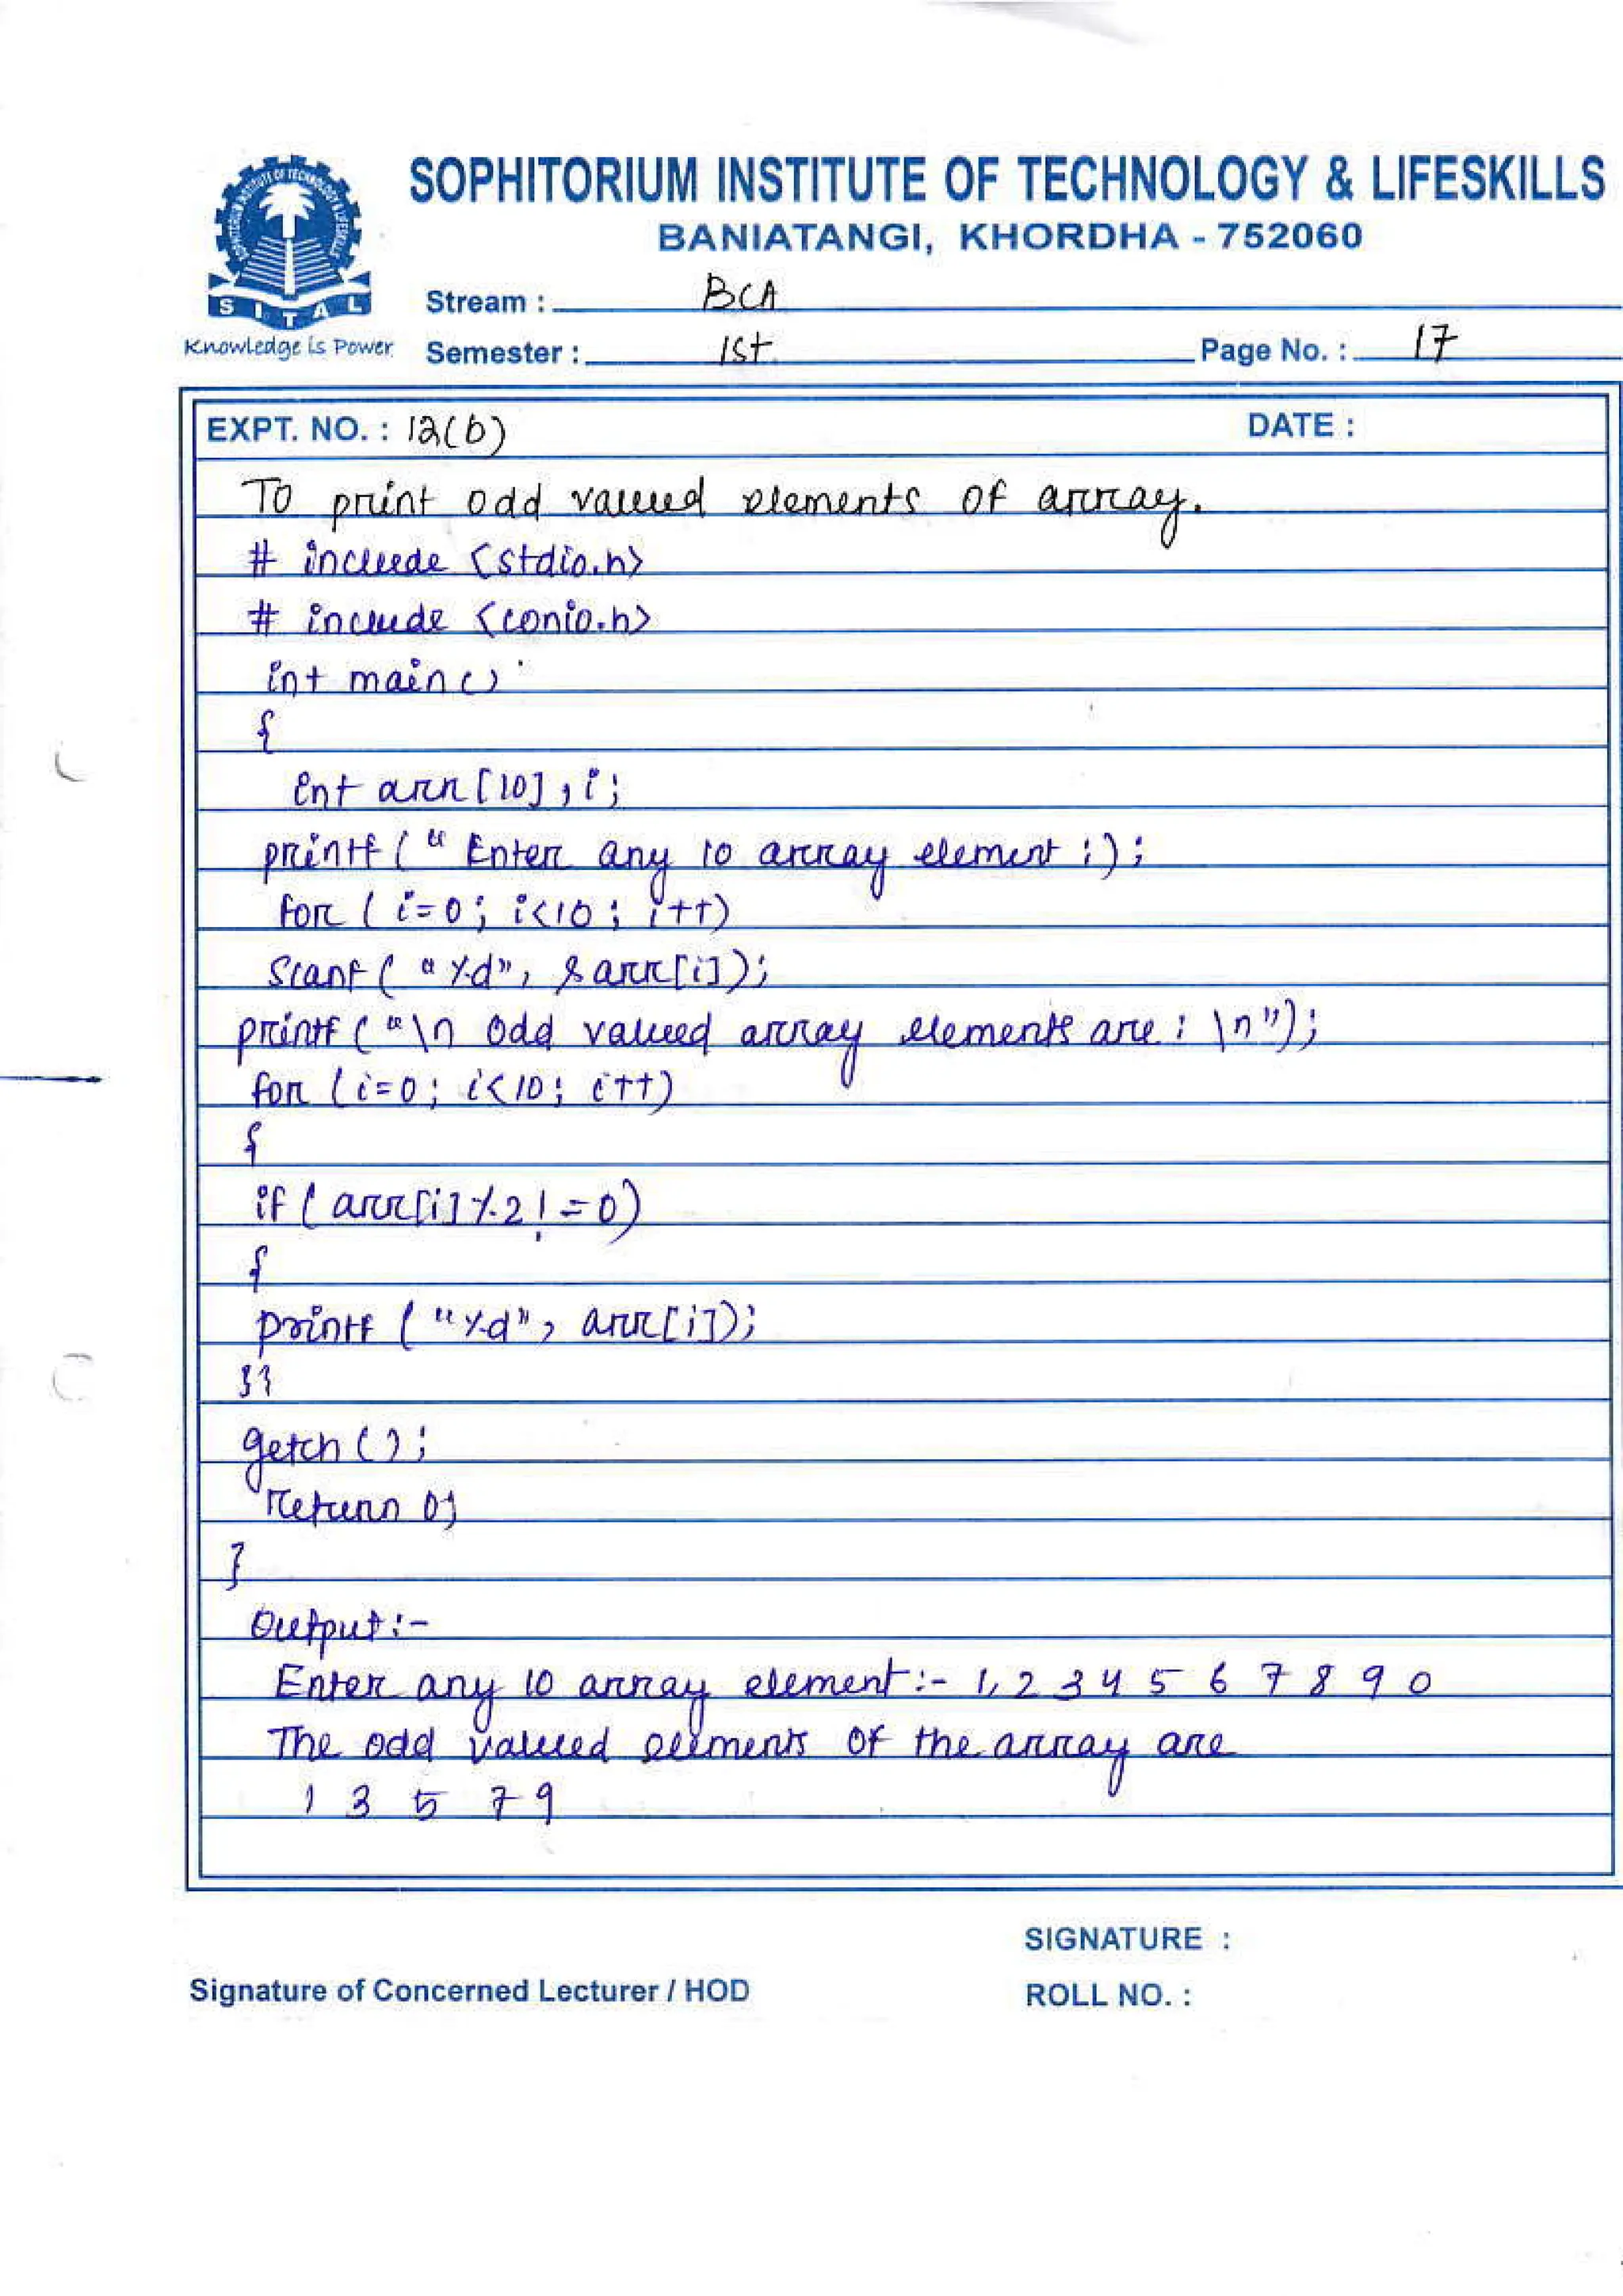 SOPHITORIUM INSTITUTE OF TECHNOLOGY & LIFESKILLS
BANIATANGI, KHORDHA - 752060
SITAL
Knowledge is Power
Stream : BCA
Semester : 1st Page No. : 17
EXPT. NO. : 12(b) DATE :
To print odd valued elements of array.
# include <stdio.h>
# include <conio.h>
int main()
{
int arr[10], i;
printf (" Enter any 10 array element :) ;
for ( i=0; i<10 ; i++)
scanf ( "%d", &arr[i]);
printf ("\n odd valued array elements are : \n");
for (i=0; i<10; i++)
{
if ( arr[i]%2 != 0)
{
printf ("%d", arr[i]);
}}
getch ();
return 0;
}
Output:-
Enter any 10 array element:- 1, 2 3 4 5 6 7 8 9 0
The odd valued elements of the array are
1 3 5 7 9
SIGNATURE :
Signature of Concerned Lecturer / HOD
ROLL NO. :